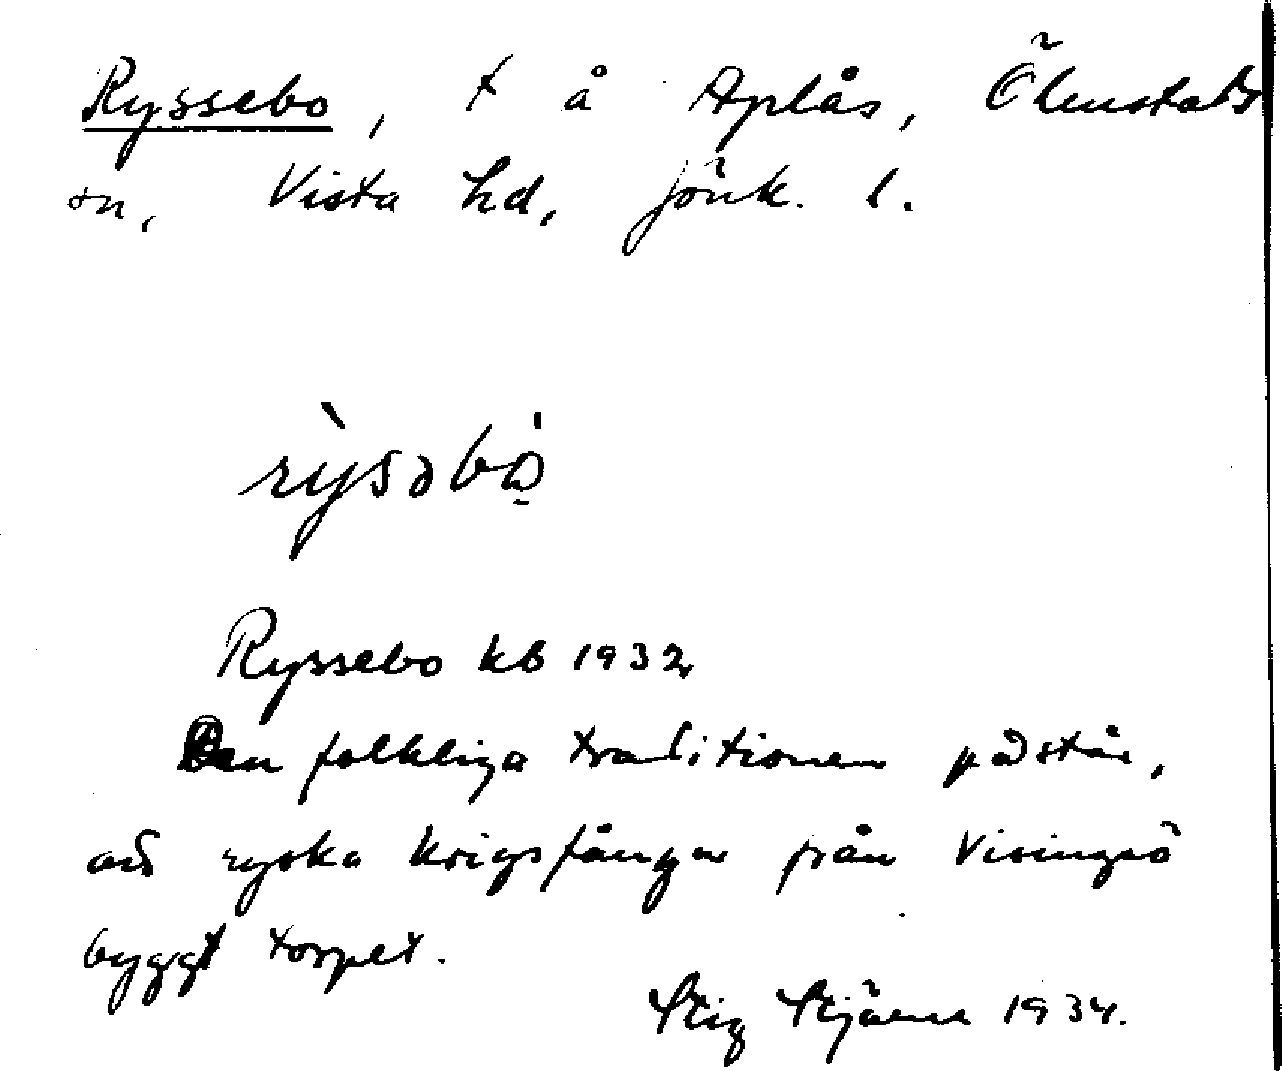 Ryssebo, t å Aplås, Ölmstads
sn, Vista hd, Jönk. l.
rỳsəbò̤
Ryssebo kb 1932
Den folkliga traditionen påstår,
att ryska krigsfångar från Visingsö
byggt torpet.
Stig 1934.